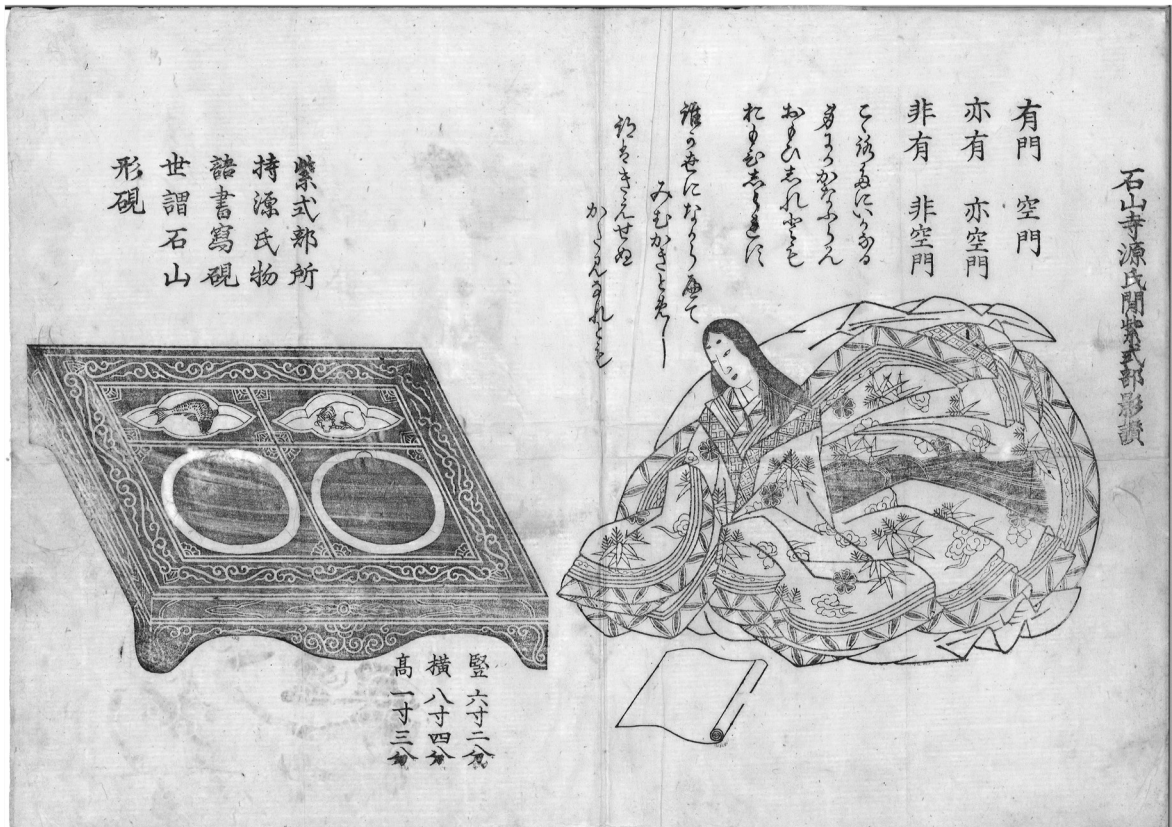 石山寺源氏間紫式部影讃
有門 空門
亦有 亦空門
非有 非空門
こゝ路たにいかなる
身にかかなふらん
おもひしれとも
おもひしられす
誰か世になからへて
みむかきとめし
跡はきえせぬ
かたみなれとも
紫式部所
持源氏物
語書寫硯
世謂石山
形硯
竪六寸二分
横八寸四分
髙一寸三分